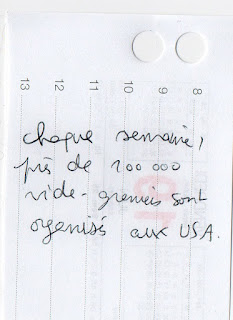 13 12 11 10 9 8
chaque semaine,
près de 100 000
vide-greniers sont
organisés aux USA.